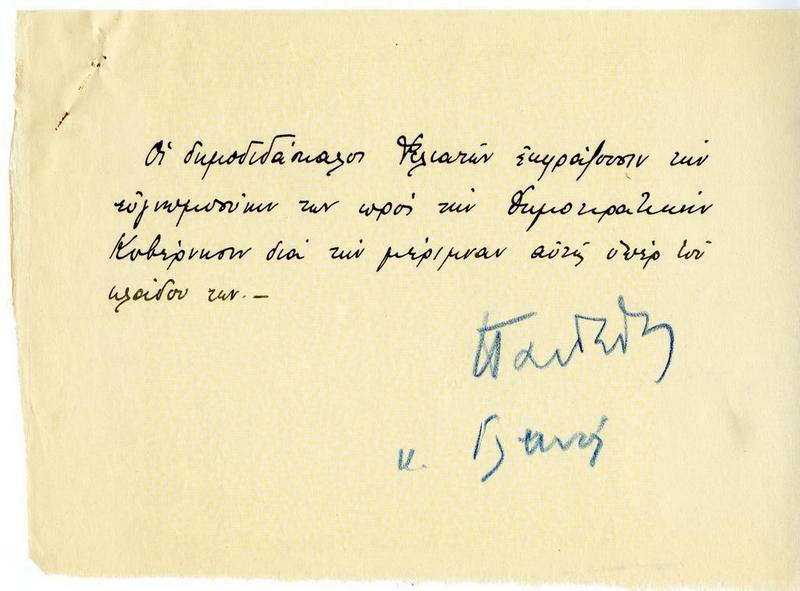 Οἱ δημοδιδάσκαλοι Φιλιατῶν ἐκφράζουσιν τὴν
εὐγνωμοσύνην των πρὸς τὴν Δημοκρατικὴν
Κυβέρνησιν διὰ τὴν μέριμναν αὐτῆς ὑπὲρ τοῦ
κλάδου των.—
κ.